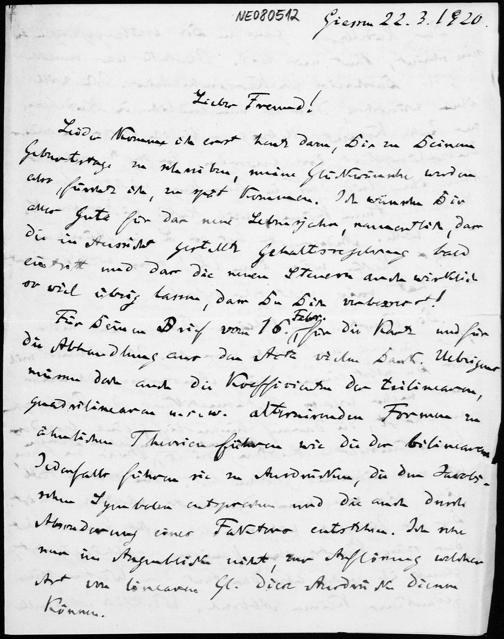 NE080512
Giessen 22.3.1920.
Lieber Freund!
Leider komme ich erst heut dazu, Dir zu Deinem
Geburtstage zu schreiben, meine Glückwünsche werden
also, fürchte ich, zu spät kommen. Ich wünsche Dir
alles Gute für das neue Lebensjahr, namentlich, dass
die in Aussicht gestellte Gehaltsregelung bald
eintritt und dass die neuen Steuern auch wirklich
so viel übrig lassen, dass Du Dich verbesserst!
Für Deinen Brief vom 16. Febr. für die Karte und für
die Abhandlung aus den Acta vielen Dank. Uebrigens
müssen doch auch die Koefficienten der trilinearen,
quadrilinearen u.s.w. alternirenden Formen zu
ähnlichen Theorien führen wie die der bilinearen
Jedenfalls führen sie zu Ausdrücken, die den Jacobi-
schen Symbolen entsprechen und die auch durch
Absonderung eines Faktors entstehen. Ich sehe
nur im Augenblicke nicht, zur Auflösung welcher
Art von linearen Gl. diese Ausdrücke dienen
können.